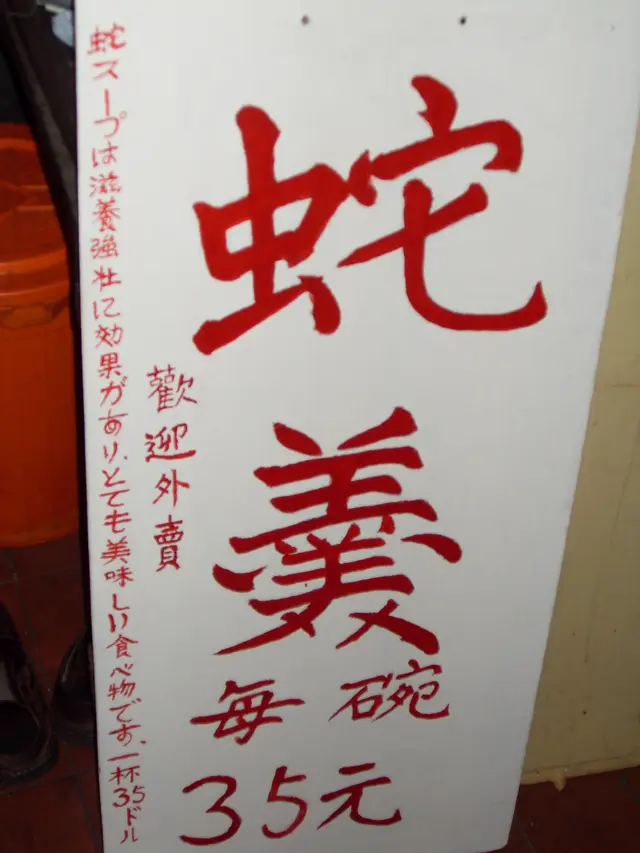 蛇羹
每碗
35元
歡迎外賣
蛇スープは滋養強壮に効果があり、とても美味しい食べ物です、一杯35ドル